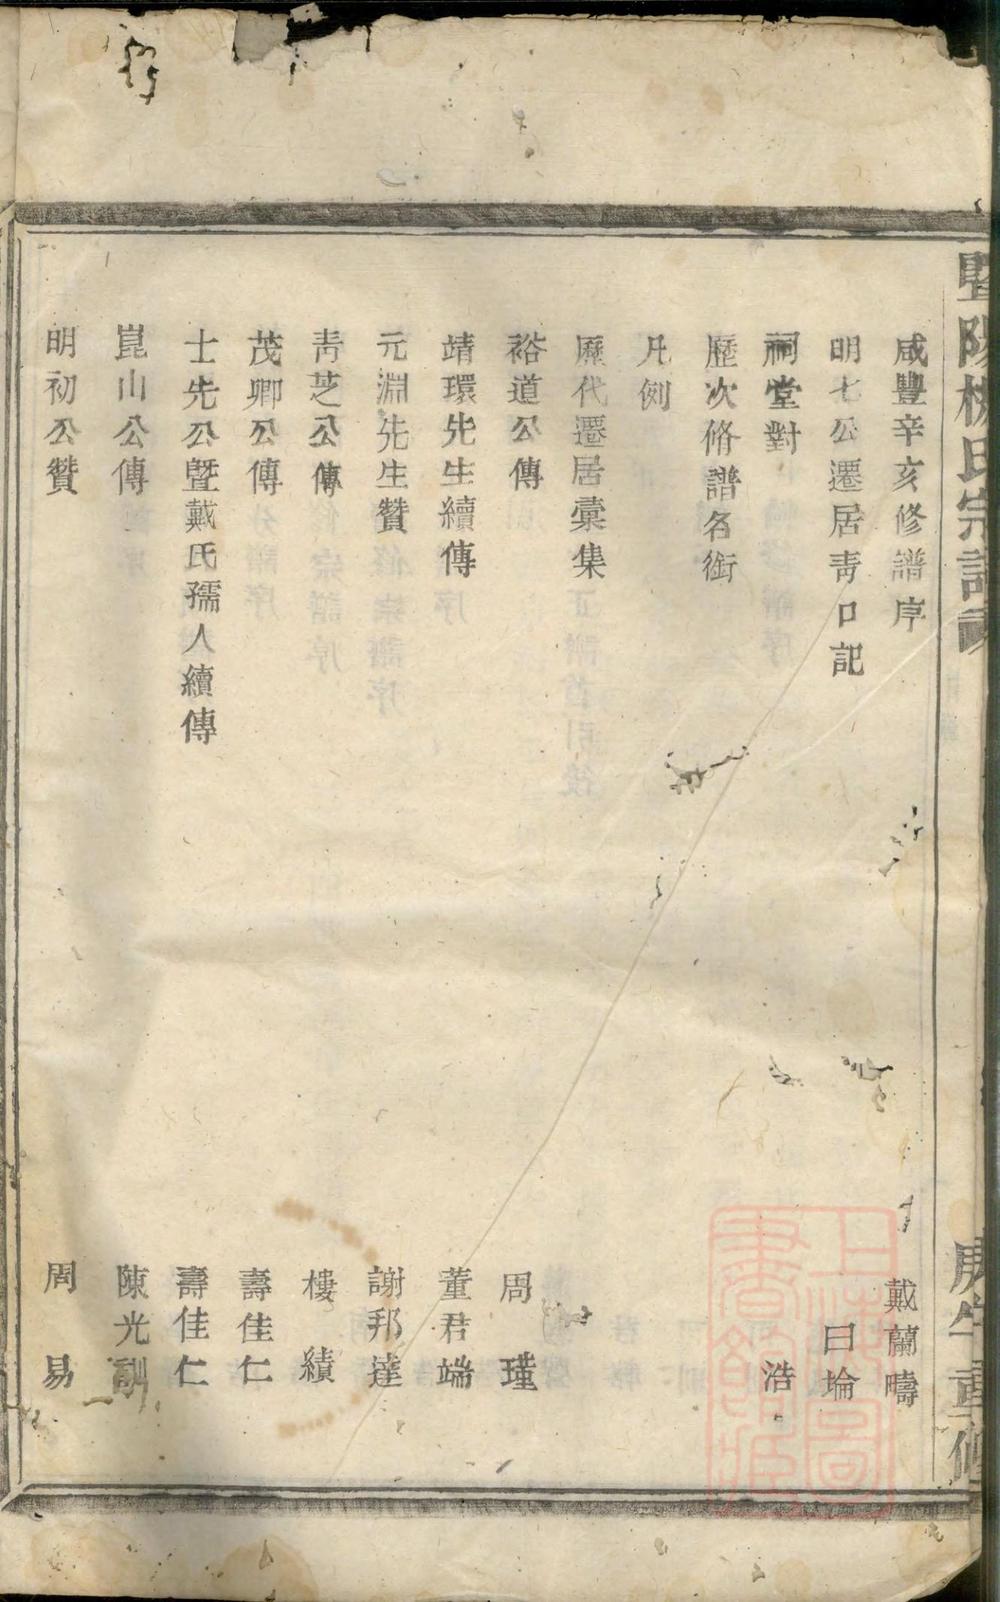 暨陽楊氏宗譜 庚午重修
咸豐辛亥修譜序 戴蘭疇
明七公遷居青口記 曰埨
祠堂對 浩
歷次脩譜名銜
凡例
歷代遷居彙集
裕道公傳 周瑾
靖環先生續傳 董君端
元淵先生贊 謝邦達
青芝公傳 樓績
茂卿公傳 壽佳仁
士先公暨戴氏孺人續傳 壽佳仁
崑山公傳 陳光訓
明初公贊 周易
上海圖書館藏